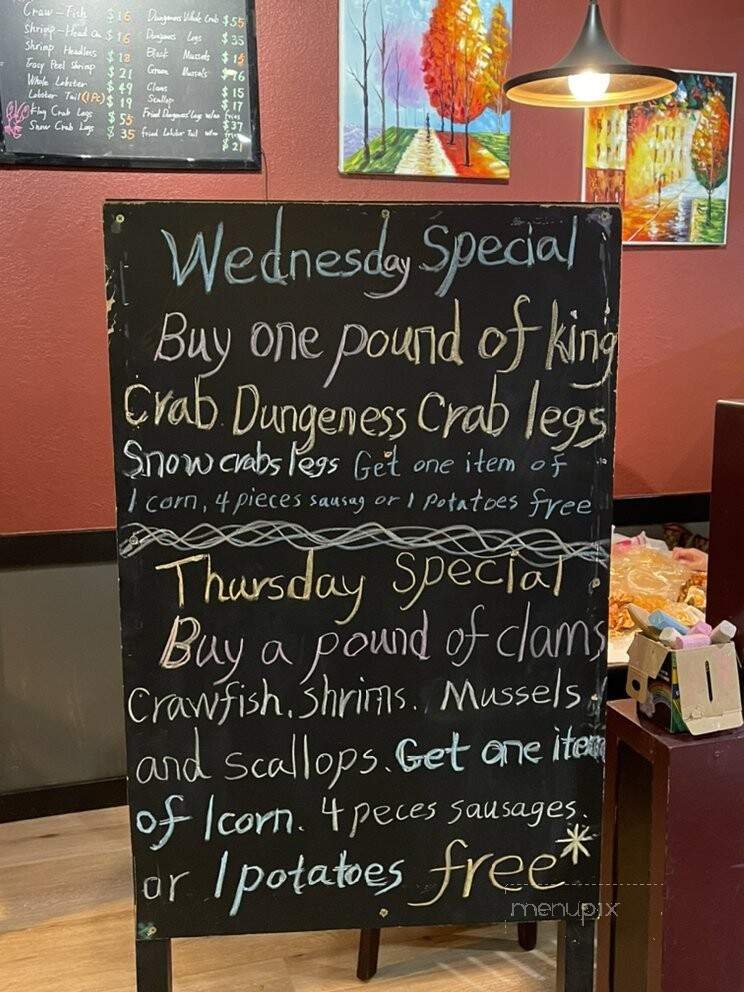 Craw-Fish $16
Shrimp-Head On $16
Shrimp Headless $18
Eacy Peel Shrimp $21
Whole Lobster $49
Lobster Tail (1Pc) $19
King Crab Legs $55
Snow Crab Legs $35
Dungeness Whole Crab $55
Dungeness Legs $35
Black Mussels $15
Green Mussels $16
Clams $15
Scallop $17
Fried Dungeness Legs w/ fries $37
Fried Lobster Tail $21
Wednesday Special
Buy one pound of king
Crab Dungeness Crab legs
Snow crabs legs Get one item of
1 corn, 4 pieces sausag or 1 potatoes free
Thursday Special
Buy a pound of clams
Crawfish, shrims. Mussels.
and scallops. Get one item
of 1corn. 4 peces sausages.
or 1 potatoes free*
menupix